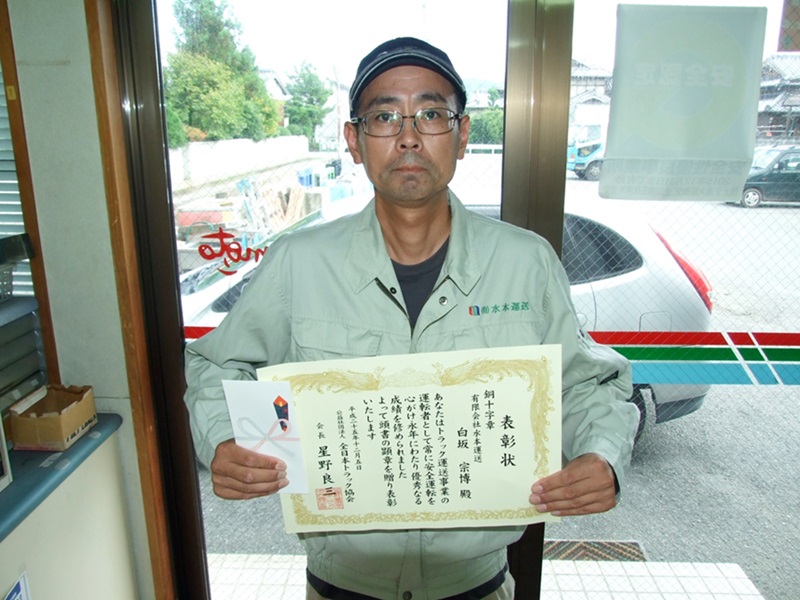 表彰状
銅十字章
有限会社水本運送
白坂 宗博 殿
あなたはトラック運送事業の
運転者として常に安全運転を
心がけ永年にわたり優秀なる
成績を修められました
よって頭書の顕章を贈り表彰
いたします
平成二十五年十二月五日
公益社団法人 全日本トラック協会
会長 星野良三
㈲水本運送